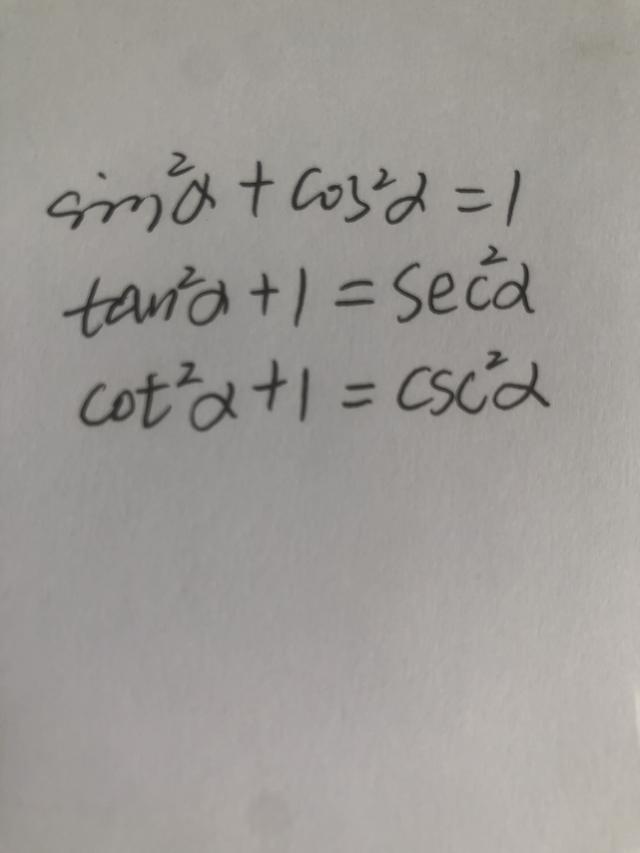 sin²α + cos²α = 1
tan²α + 1 = sec²α
cot²α + 1 = csc²α